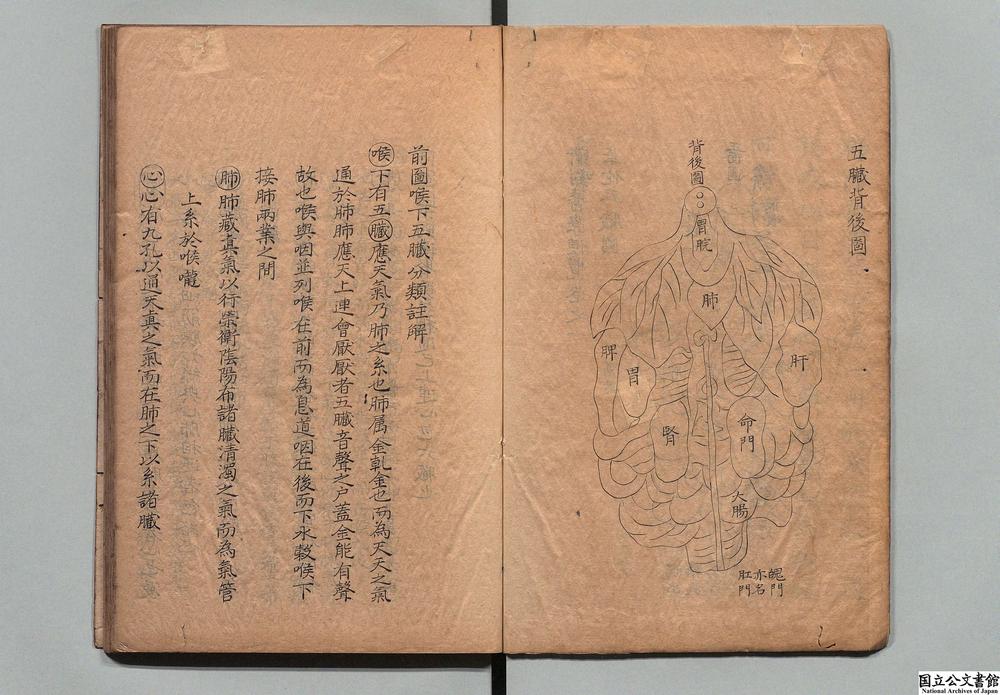 五臟背後圖
背後圖
胃脘
肺
脾
胃
肝
腎
命門
大腸
魄門
亦名
肛門
前圖喉下五臟分類註解
喉下有五臟應天氣乃肺之系也肺属金乹金也而為天天之氣
通於肺肺應天上連會厭厭者五臟音聲之户蓋金能有聲
故也喉與咽並列喉在前而為息道咽在後而下水穀喉下
接肺兩葉之間
肺肺藏真氣以行榮衛陰陽布諸臟清濁之氣而為氣管
上系於喉嚨
心心有九孔以通天真之氣而在肺之下以系諸臟
国立公文書館
National Archives of Japan